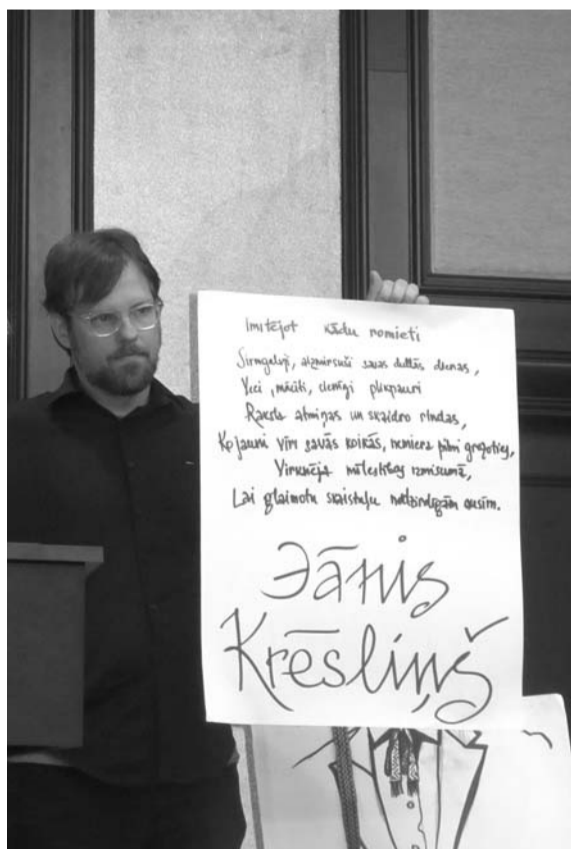 Imitējot kādu romieti
Sirmgalvji, aizmirsuši savas dullās dienas,
Veci, mācīti, cienīgi plikpauri
Raksta atmiņas un skaidro rindas,
Ko jauni vīri savās koikās, nemiera pilni grozoties,
Virknēja mīlestības izmisumā,
Lai glaimotu skaistuļu nedzirdīgām ausīm.
Jānis
Krēsliņš